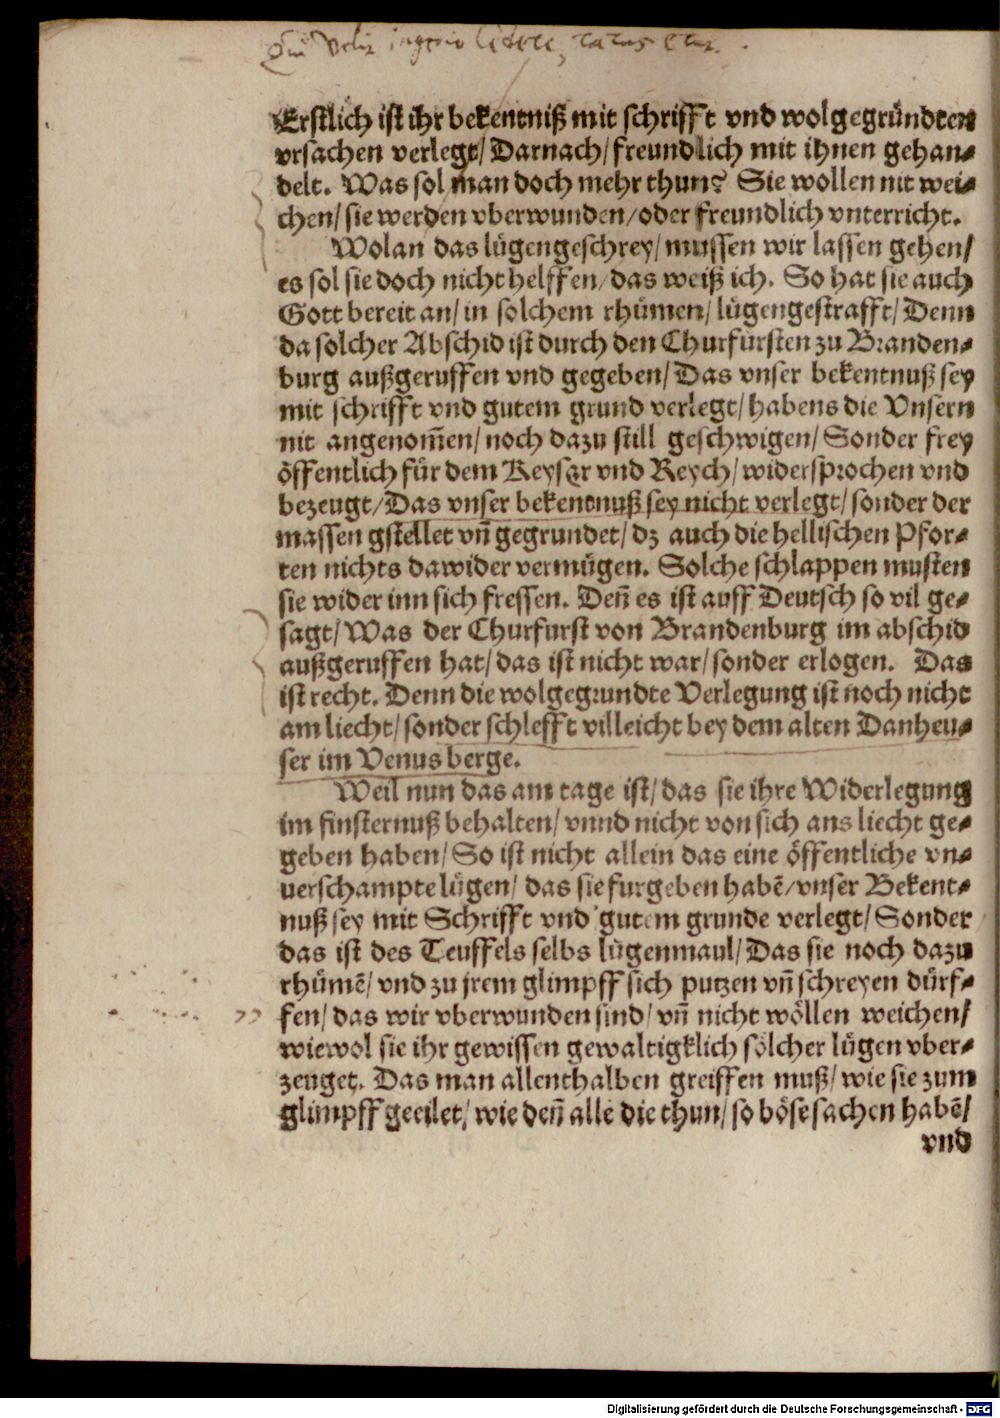 Erstlich ist ihr bekentniß mit schrifft vnd wolgegründten
vrsachen verlegt/ Darnach/ freundlich mit ihnen gehan-
delt. Was sol man doch mehr thun? Sie wollen nit wei-
chen/ sie werden vberwunden/ oder freundlich vnterricht.
Wolan das lügengeschrey/ mussen wir lassen gehen/
es sol sie doch nicht helffen/ das weiß ich. So hat sie auch
Gott bereit an/ in solchem rhümen/ lügengestrafft/ Denn
da solcher Abschid ist durch den Churfürsten zu Branden-
burg außgeruffen vnd gegeben/ Das vnser bekentnuß sey
mit schrifft vnd gutem grund verlegt/ habens die Vnsern
nit angenom̃en/ noch dazu still geschwigen/ Sonder frey
öffentlich für dem Keyser vnd Reych/ widersprochen vnd
bezeugt/ Das vnser bekentnuß sey nicht verlegt/ sonder der
massen gstellet vñ gegrundet/ dz auch die hellischen Pfor-
ten nichts dawider vermügen. Solche schlappen musten
sie wider inn sich fressen. Deñ es ist auff Deutsch so vil ge-
sagt/ Was der Churfurst von Brandenburg im abschid
außgeruffen hat/ das ist nicht war/ sonder erlogen. Das
ist recht. Denn die wolgegrundte Verlegung ist noch nicht
am liecht/ sonder schlefft villeicht bey dem alten Danheu-
ser im Venus berge.
Weil nun das am tage ist/ das sie ihre Widerlegung
im finsternuß behalten/ vnnd nicht von sich ans liecht ge-
geben haben/ So ist nicht allein das eine öffentliche vn-
uerschampte lügen/ das sie furgeben habẽ/ vnser Bekent-
nuß sey mit Schrifft vnd gutem grunde verlegt/ Sonder
das ist des Teuffels selbs lügenmaul/ Das sie noch dazu
rhümẽ/ vnd zu jrem glimpff sich putzen vñ schreyen dürf-
fen/ das wir vberwunden sind/ vñ nicht wöllen weichen/
wiewol sie ihr gewissen gewaltigklich solcher lügen vber-
zeuget. Das man allenthalben greiffen muß/ wie sie zum
glimpff geeilet/ wie deñ alle die thun/ so böse sachen habẽ/
vnd
Digitalisierung gefördert durch die Deutsche Forschungsgemeinschaft - DFG